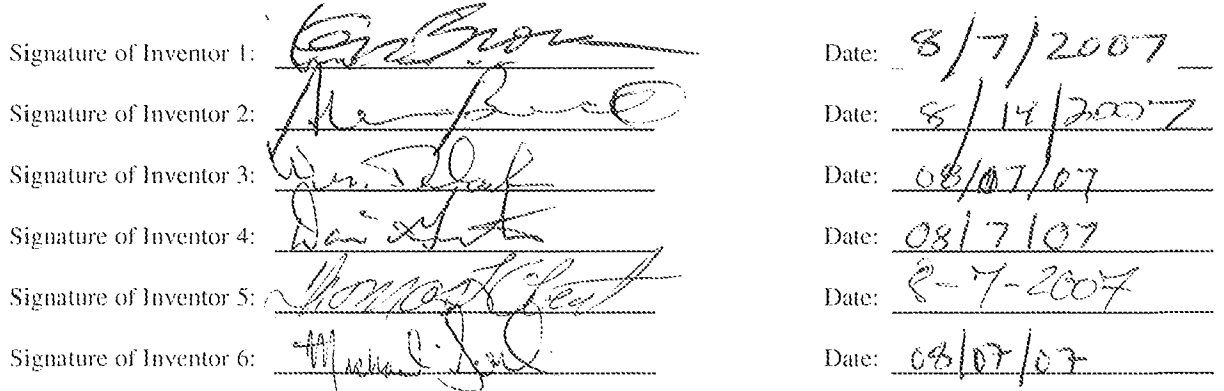 Signature of Inventor 1: Brown Date: 8/7/2007
Signature of Inventor 2: Date: 8/14/2007
Signature of Inventor 3: Date: 08/07/07
Signature of Inventor 4: Date: 08/7/07
Signature of Inventor 5: Thomas Date: 8-7-2007
Signature of Inventor 6: Michael Date: 08/07/07